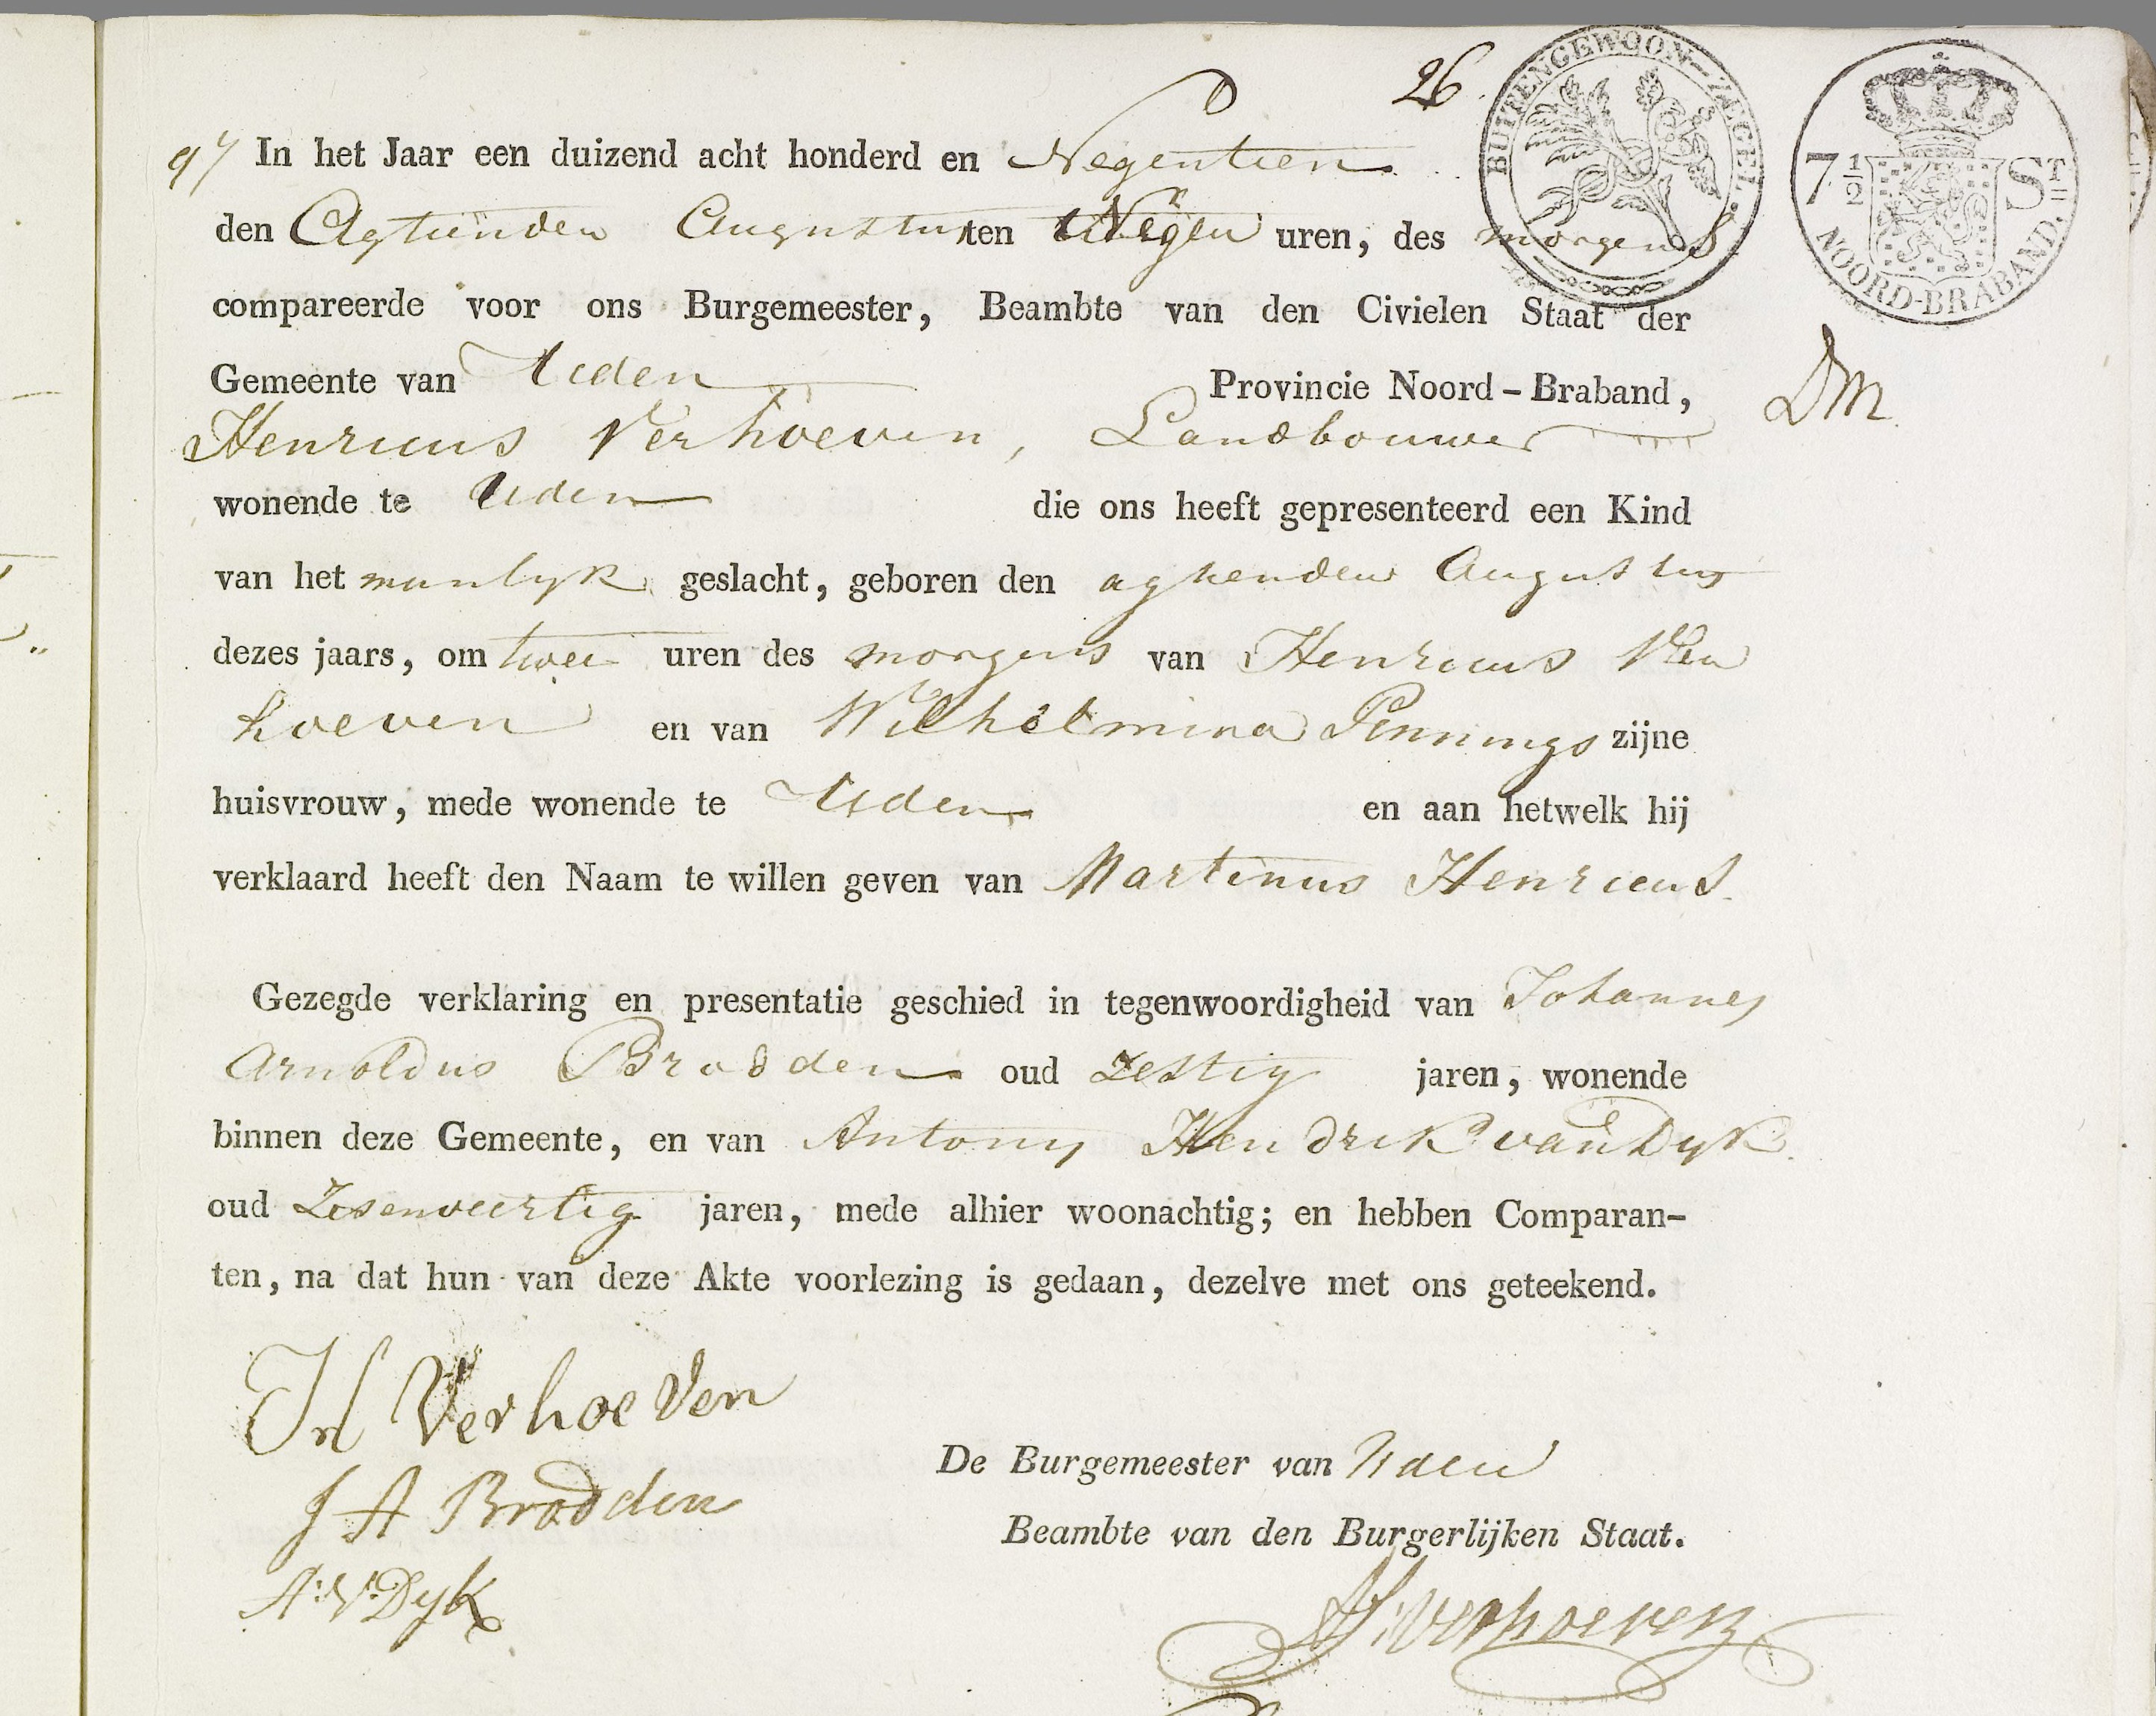 26.
BUITENGEWOON-ZEGEL.
7 1/2 ST
NOORD-BRABAND.
97 In het Jaar een duizend acht honderd en Negentien
den Agtienden Augustus ten Negen uren, des morgens
compareerde voor ons Burgemeester, Beambte van den Civielen Staat der
Gemeente van Uden Provincie Noord-Braband,
Henricus Verhoeven, Landbouwer
wonende te Uden die ons heeft gepresenteerd een Kind
van het manlyk geslacht, geboren den agtienden Augustus
dezes jaars, om twee uren des morgens van Henricus Ver
hoeven en van Wilhelmina Pennings zijne
huisvrouw, mede wonende te Uden en aan hetwelk hij
verklaard heeft den Naam te willen geven van Martinus Henricus.
Gezegde verklaring en presentatie geschied in tegenwoordigheid van Johannes
Arnoldus Brodden oud zestig jaren, wonende
binnen deze Gemeente, en van Antony Hendrik van Dyk.
oud Zesenveertig jaren, mede alhier woonachtig; en hebben Comparan-
ten, na dat hun van deze Akte voorlezing is gedaan, dezelve met ons geteekend.
Verhoeven
J A Brodden
A: V: Dyk
De Burgemeester van Uden
Beambte van den Burgerlijken Staat.
Verhoeven